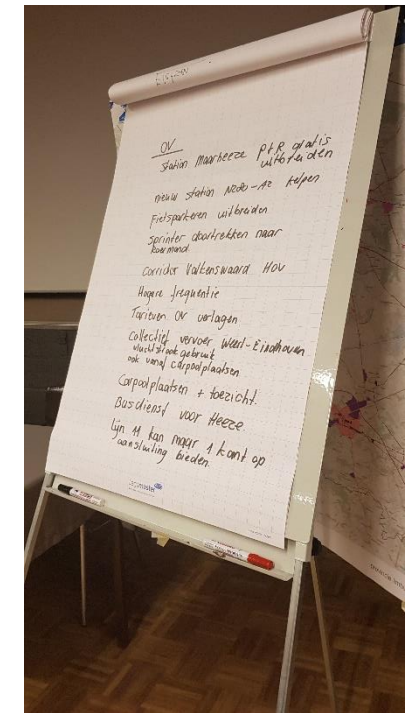 OV
Station Maarheeze P+R gratis
uitbreiden
nieuw station N280-A2 Kelpen
Fietsparkeren uitbreiden
Sprinter doortrekken naar
Roermond.
Corridor Valkenswaard HOV
Hogere frequentie
Tarieven OV verlagen
Collectief vervoer Weert-Eindhoven
vluchtstrook gebruik
ook vanaf carpoolplaatsen
Carpoolplaatsen + toezicht.
Busdienst voor Heeze.
Lijn 11 kan maar 1 kant op
aansluiting bieden.